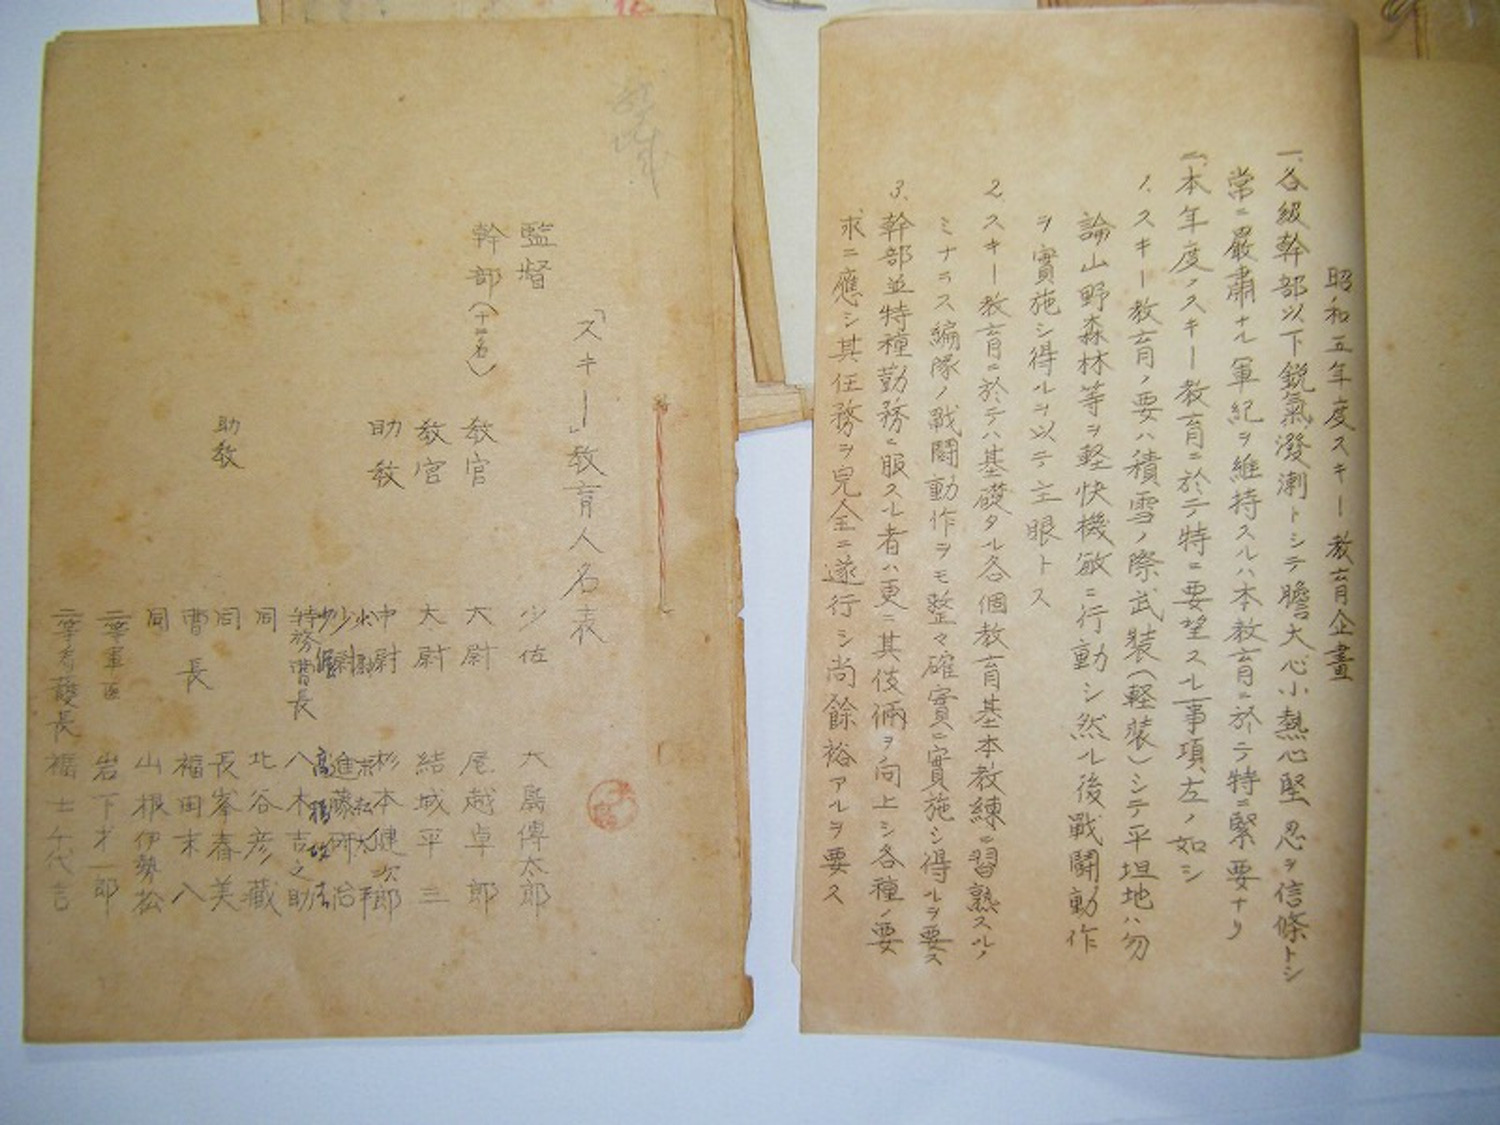 昭和五年度スキー教育企畫
一、各級幹部以下鋭氣潑溂トシテ膽大心小熱心堅忍ヲ信條トシ
常ニ嚴肅ナル軍紀ヲ維持スルハ本教育ニ於テ特ニ緊要ナリ
二、本年度ノスキー教育ニ於テ特ニ要望スル事項、左ノ如シ
1、スキー教育ノ要ハ積雪ノ際武装(軽装)シテ平坦地ハ勿
論山野森林等ヲ軽快機敏ニ行動シ然ル後戰闘動作
ヲ實施シ得ルヲ以テ主眼トス
2、スキー教育ニ於テハ基礎タル各個教育基本教練ニ習熟スルノ
ミナラス編隊ノ戰闘動作ヲモ整々確實ニ實施シ得ルヲ要ス
3、幹部並特種勤務ニ服スル者ハ更ニ其伎倆ヲ向上シ各種ノ要
求ニ應シ其任務ヲ完全ニ遂行シ尚餘裕アルヲ要ス
「スキー」教育人名表
監督 少佐 大島傳太郎
幹部(十四名) 教官 大尉 尾越卓郎
教官 大尉 結城平三
助教 中尉 杉本健次郎
少尉 進藤研治
特務曹長 八木吉之助
同 北谷彦藏
助教 同 長峯春美
曹長 福田末八
同 山根伊勢松
二等軍医 岩下才一郎
二等看護長 福士千代吉